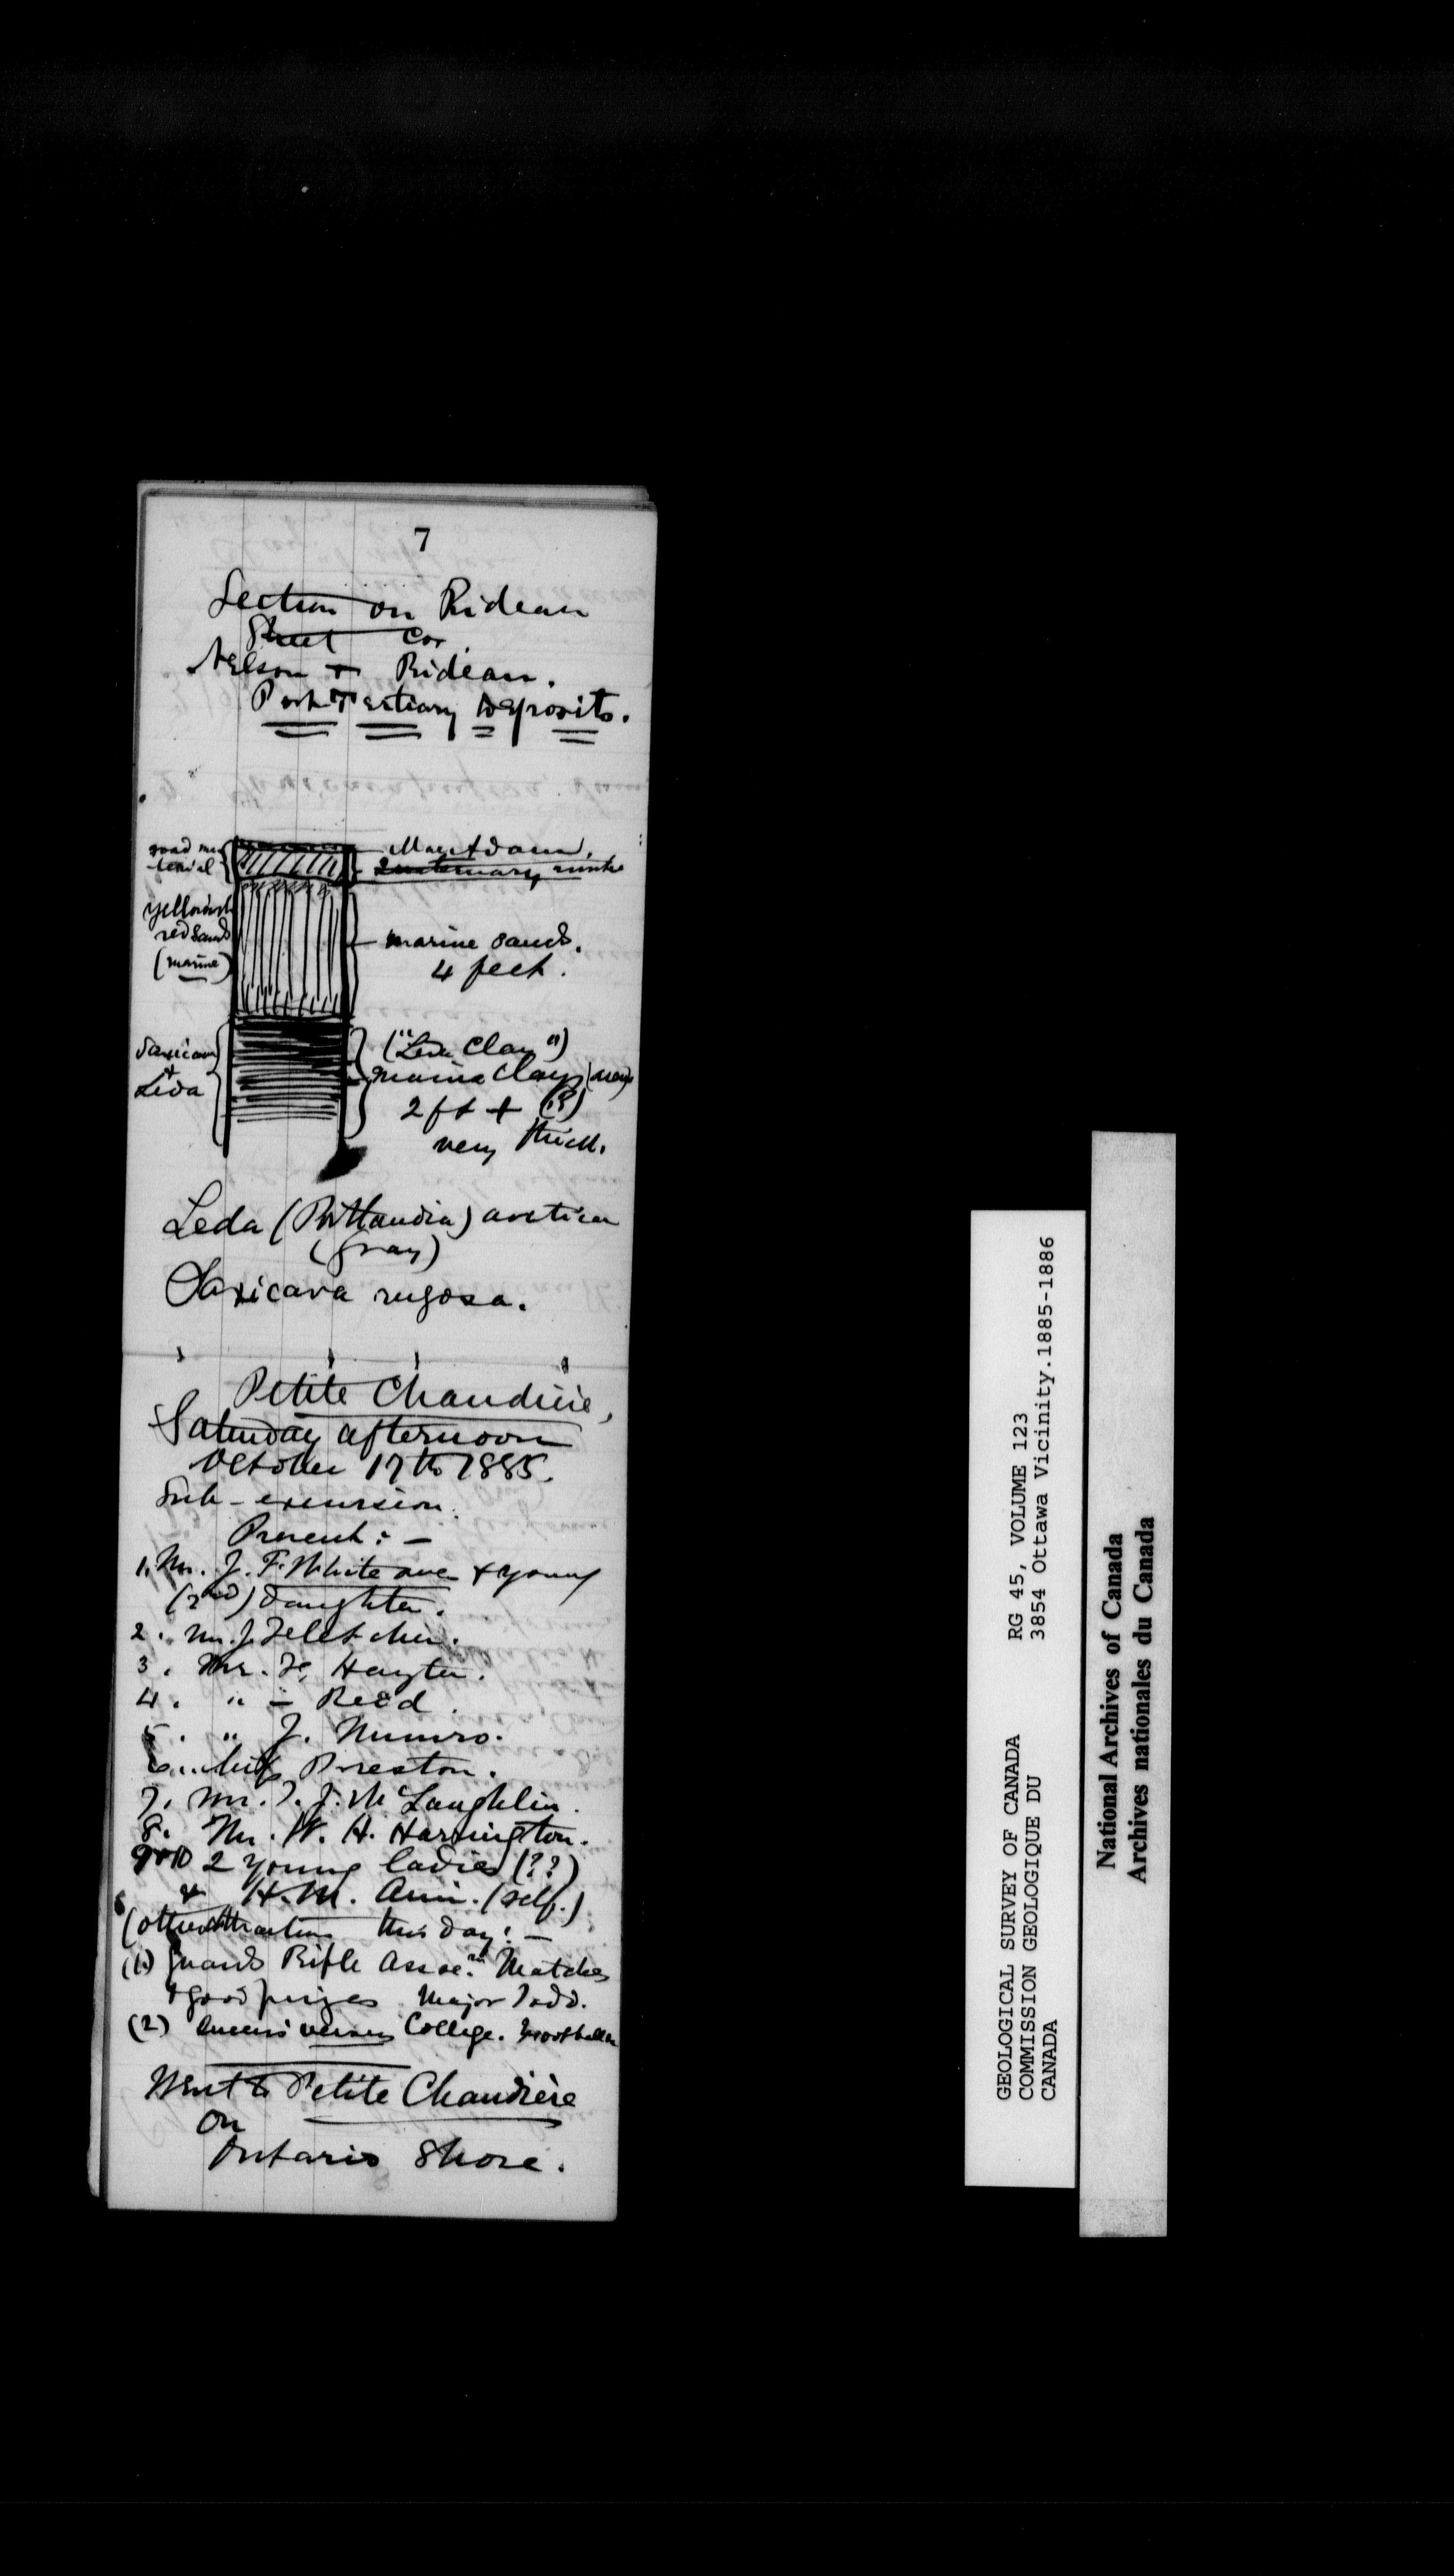 7
Section on Rideau
Street cor.
Nelson + Rideau.
Post Tertiary Deposits.
road ma
-terial
MacAdam.
Quaternary
yellowish
red sands
(marine)
marine sands.
4 feet.
Saxicava
+
Leda
("Leda Clay")
marine clay
2 ft + (?)
very thick.
Leda (Portlandia) arctica
(Gray)
Saxicava rugosa.
Petite Chaudière,
Saturday afternoon
October 17th 1885.
Sub-excursion.
Present: —
1. Mr. J. F. Whiteaves + young
(2nd) daughter.
2. Mr. J. Fletcher.
3. Mr. F. Hayter.
4. " — Reed.
5. " J. Munro.
6. Miss Preston.
7. Mr. T. J. McLaughlin.
8. Mr. W. H. Harrington.
9+10 2 young ladies (??)
+ H. M. Ami. (self.)
(other attractions this day: —
(1) Guards Rifle Assocn. Matches
+ good prizes Major Todd.
(2) Queens versus College. Football
Went to Petite Chaudière
on
Ontario Shore.
GEOLOGICAL SURVEY OF CANADA
COMMISSION GEOLOGIQUE DU
CANADA
RG 45, VOLUME 123
3854 Ottawa Vicinity.1885-1886
National Archives of Canada
Archives nationales du Canada